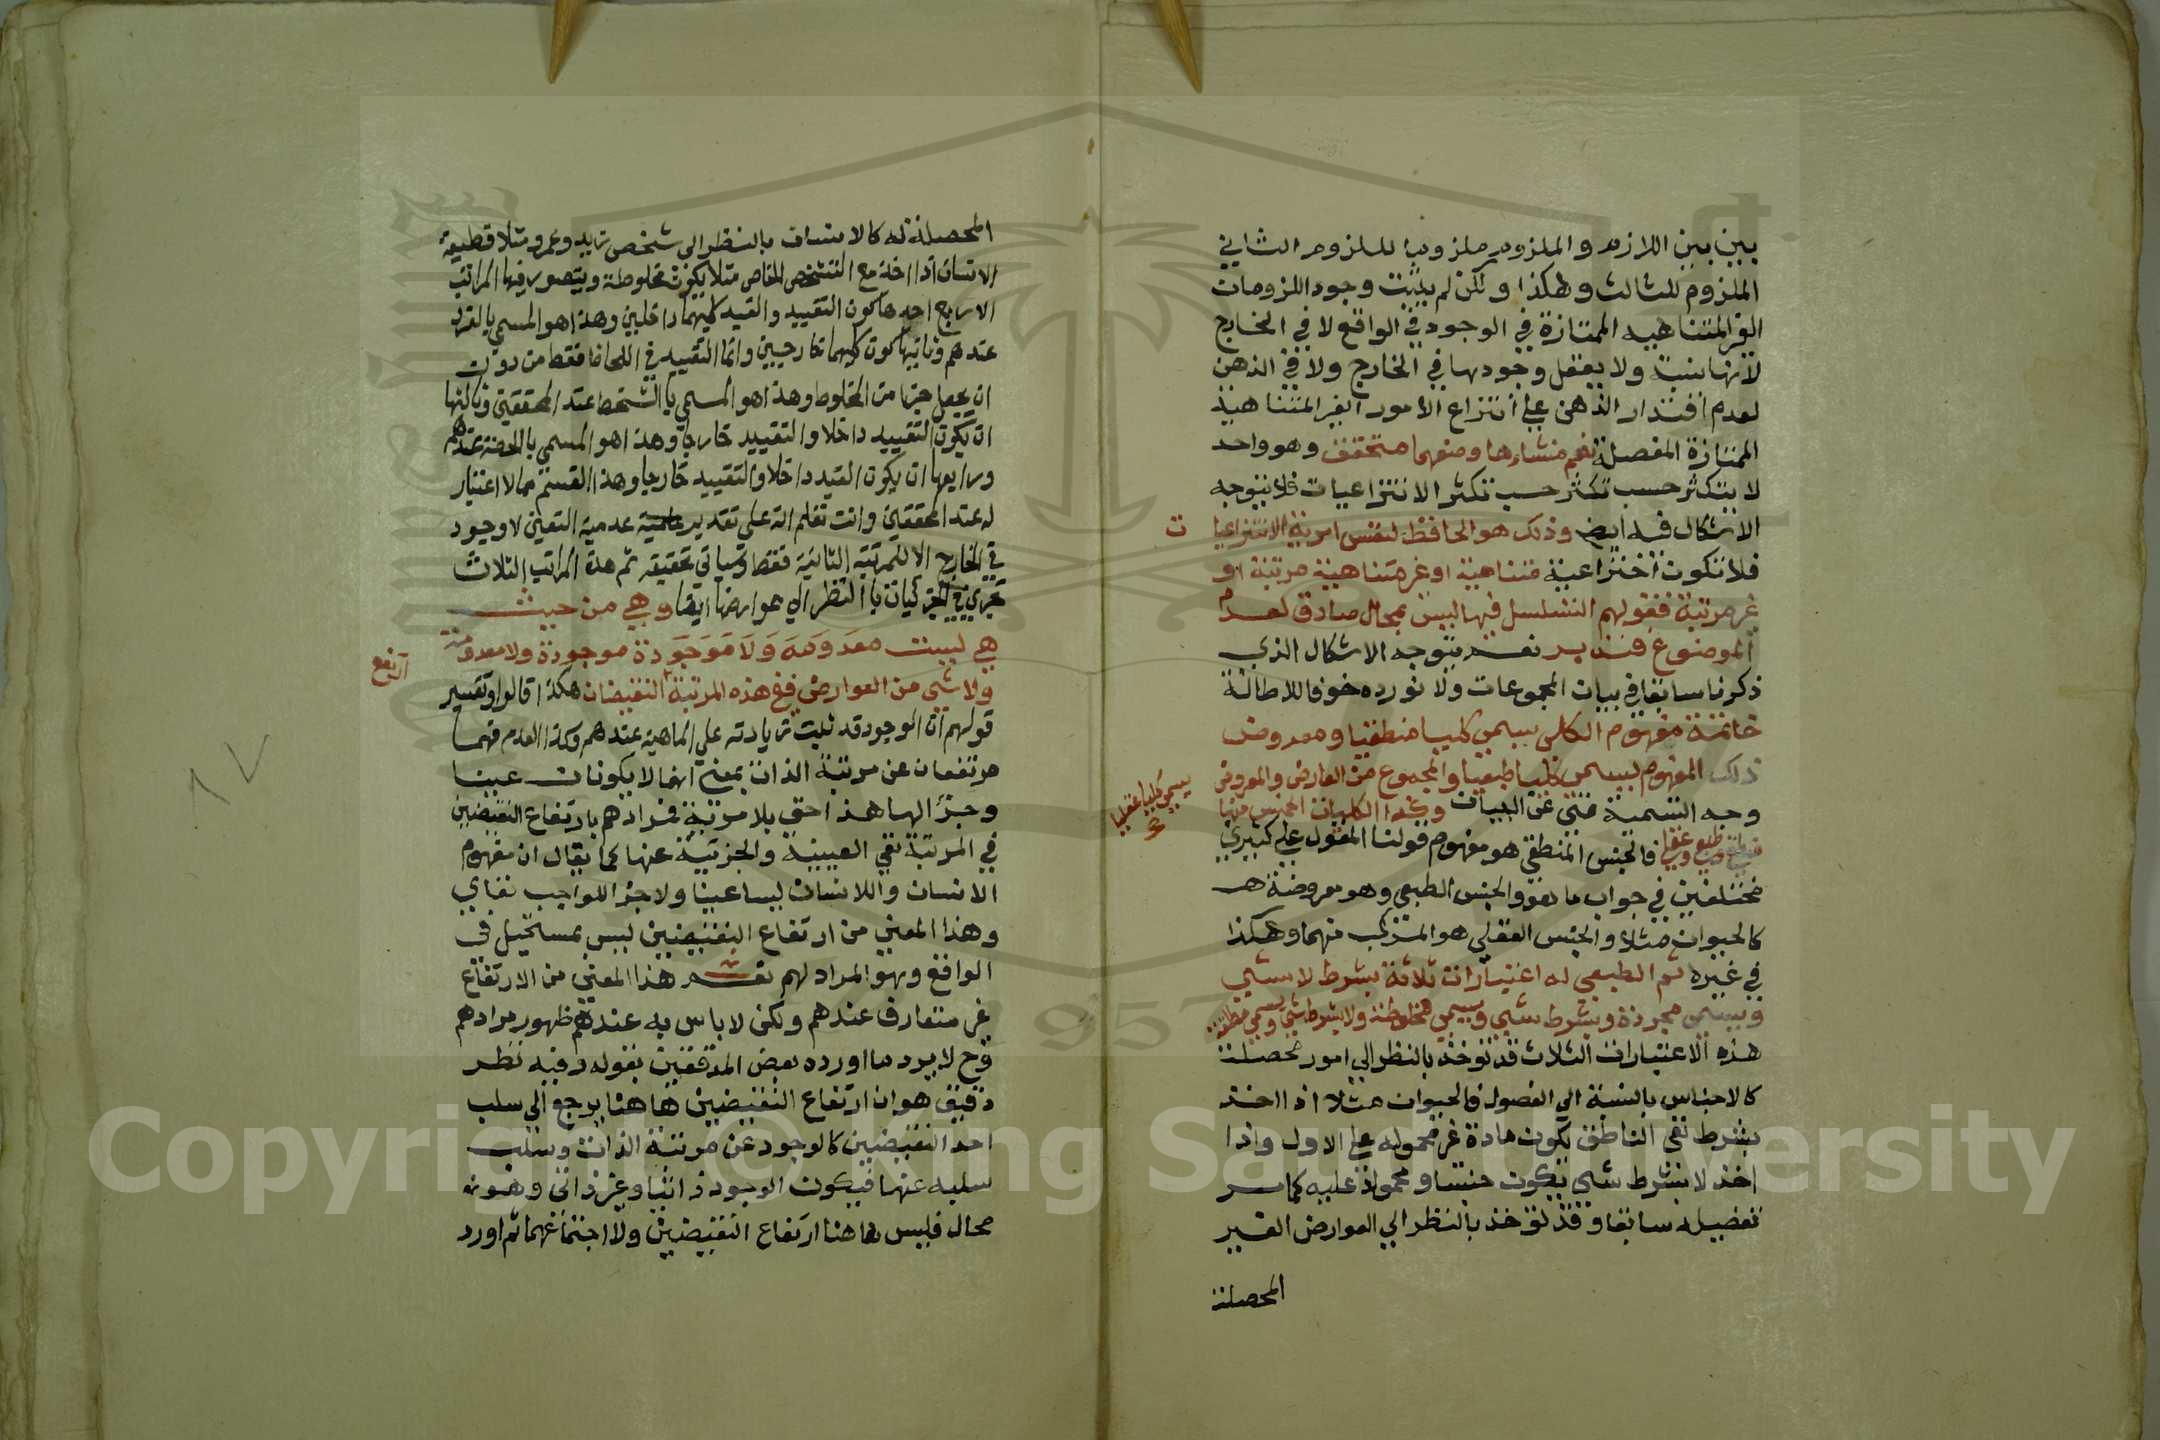 بين بين اللازم والملزوم ملزوما للملزوم الثاني
الملزوم للثالث وهكذا ولكن لم يثبت وجود اللزومات
الغير المتناهيه الممتازة في الوجود في الواقع لا في الخارج
لانها نسبة ولا يعقل وجودها في الخارج ولا في الذهن
لعدم اقتدار الذهن على انتزاع الامور الغير المتناهية
الممتازة المفصلة نعم منشاءها ومنهما متحقق وهو واحد
لا يتكثر حسب تكثر حسب تكثر الانتزاعيات فلا يتوجه
الاشكال فيه ايض وذلك هو الحافظ لنفس امرية الانتزاعيات
فلا تكون اختراعية متناهية او غير متناهية مرتبة او
غير مرتبة فقولهم التسلسل فيها ليس بمحال صادق لعدم
الموضوع فتدبر نعم يتوجه الاشكال الذي
ذكرنا سابقا في بيان المجموعات ولا نورده خوفا للاطالة
خاتمة مفهوم الكلى يسمي كليا منطقيا ومعروض
ذلك المفهوم يسمى كليا طبعيا والمجموع من العارض والمعروض
يسمي كليا عقليا
وجه التسمية غني عن البيان وكذا الكليات الخمس منها
منطقي وطبعي وعقلي فالجنس المنطقي هو مفهوم قولنا المقول على كثيرين
مختلفين في جواب ما هو والجنس الطبعي وهو معروضة
كالحيوان مثلا والجنس العقلي هو المتركب منهما وهكذا
في غيره ثم الطبعي له اعتبارات ثلاثة بشرط لا شي
ويسمى مجردة وبشرط شي ويسمي مخلوطة ولا بشرط شي ويسمي مطلقة
هذه الاعتبارات الثلاث قد توخذ بالنظر الي امور محصلة
كالاجناس بالنسبة الي الفصول فالحيوان مثلا اذا اخذ
بشرط نفي الناطق يكون مادة غير محموله على الاول واذا
اخذ لا بشرط شي يكون جنسا ومحمولا عليه كما مر
تفصيله سابقا وقد توخذ بالنظر الي العوارض الغير
المحصلة
المحصلة له كالانسان بالنظر الي شخص زيد وعمرو مثلا فطبيعة
الانسان اذا اخذ مع التشخص الخاص مثلا يكون مخلوطة ويتصور فيها المراتب
الاربع احدها كون التقييد والقيد كليهما داخلين وهذا هو المسمي بالفرد
عندهم وثانيها كون كليهما خارجيين وانما التقييد في اللحاظ فقط من دون
ان يجعل جزا من المخلوط وهذا هو المسمي بالشخص عند المحققين وثالثها
ان يكون التقييد داخلا والتقييد خارجا وهذا هو المسمي بالحصة عندهم
ورابعها ان يكون القيد داخلا والتقييد خارجا وهذا القسم مما لا اعتبار
له عند المحققين وانت تعلم انه على تقدير عدمية التعين لا وجود
في الخارج الا للمرتبة الثانية فقط وسياتي تحقيقه ثم هذه المراتب الثلاث
تجري في الجزئيات بالنظر الي عوارضها ايضا وهي من حيث
هي ليست معدومة ولا موجودة موجودة ولا معدومة
ولا شي من العوارض ففي هذه المرتبة ارتفع النقيضان هكذا قالوا وتفسير
قولهم ان الوجود قد ثبت زيادته علي الماهية عندهم وكذا العدم فهما
مرتفعان عن مرتبة الذات بمعني انهما لا يكونان عينا
وجزا لها هذا حق بلا مرية فمرادهم بارتفاع النقيضين
في المرتبة نفي العينية والجزئية عنها كما يقال ان مفهوم
الانسان واللا انسان ليسا عينا ولا جزا للواجب تعالي
وهذا المعني من ارتفاع النقيضين ليس بمستحيل في
الواقع وهو المراد لهم نعم هذا المعني من الارتفاع
غير متعارف عندهم ولكن لا باس به عندهم ظهور مرادهم
فح لا يرد ما اورده بعض المدققين بقوله وفيه نظر
دقيق هو ان ارتفاع النقيضين ها هنا يرجع الى سلب
احد النقيضين كالوجود عن مرتبة الذات وسلب
سلبه عنها فيكون الوجود ذاتيا وغير ذاتي وهونه
محال فليس ها هنا ارتفاع النقيضين ولا اجتماعهما ثم اورد
Copyright © King Saud University
1957